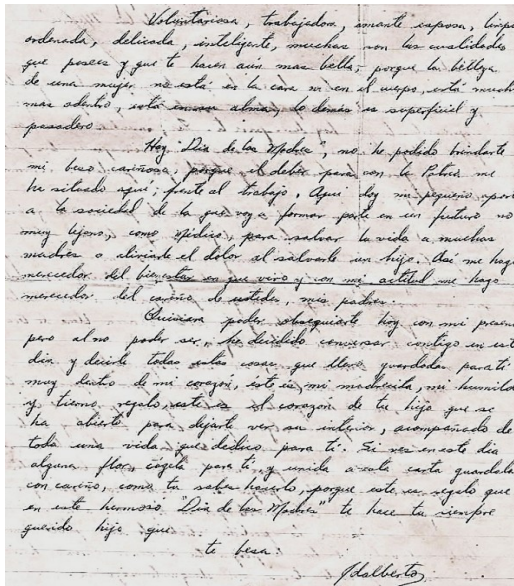 Voluntariosa, trabajadora, amante esposa, limpia
ordenada, delicada, inteligente, muchas son las cualidades
que posees y que te hacen aún mas bella, porque la belleza
de una mujer no está en la cara ni en el cuerpo, está mucho
mas adentro, está en su alma, lo demás es superficial y
pasadero
Hoy "Dia de las Madres", no he podido brindarte
mi beso cariñoso, porque el deber para con la Patria me
ha situado aquí, frente al trabajo, Aquí doy mi pequeño aport
a la sociedad de la que voy a formar parte en un futuro no
muy lejano, como Médico, para salvar la vida a muchas
madres o aliviarle el dolor al salvarle un hijo. Asi me hago
merecedor del bienestar en que vivo y con mi actitud me hago
merecedor del cariño de ustedes, mis padres.
Quisiera poder obsequiarte hoy con mi presenc
pero al no poder ser, he decidido conversar contigo en este
dia y decirte todas estas cosas que llevo guardadas para ti
muy dentro de mi corazón, este es, mi madrecita, mi humilde
y tierno regalo, este es el corazón de tu hijo que se
ha abierto para dejarte ver su interior, acompañado de
toda una vida que dedico para ti. Si ves en este dia
alguna flor, cógela para ti, y unida a esta carta guardala
con cariño, como tu sabes hacerlo, porque este es regalo que
en este hermoso "Dia de las Madres" te hace tu siempre
querido hijo que
te besa:
Idalberto